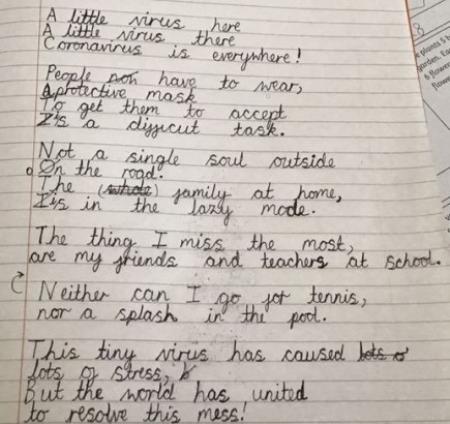 A little virus here
A little virus there
Coronavirus is everywhere!
People non have to wear,
A protective mask
To get them to accept
Is a difficut task.
Not a single soul outside
On the road.
The (whole) family at home,
Is in the lazy mode.
The thing I miss the most,
are my friends and teachers at school.
Neither can I go for tennis,
nor a splash in the pool.
This tiny virus has caused lots o
lots of stress,
But the world has united
to resolve this mess!
8
plants 5 b
garden. Ea
6 flower
flowe